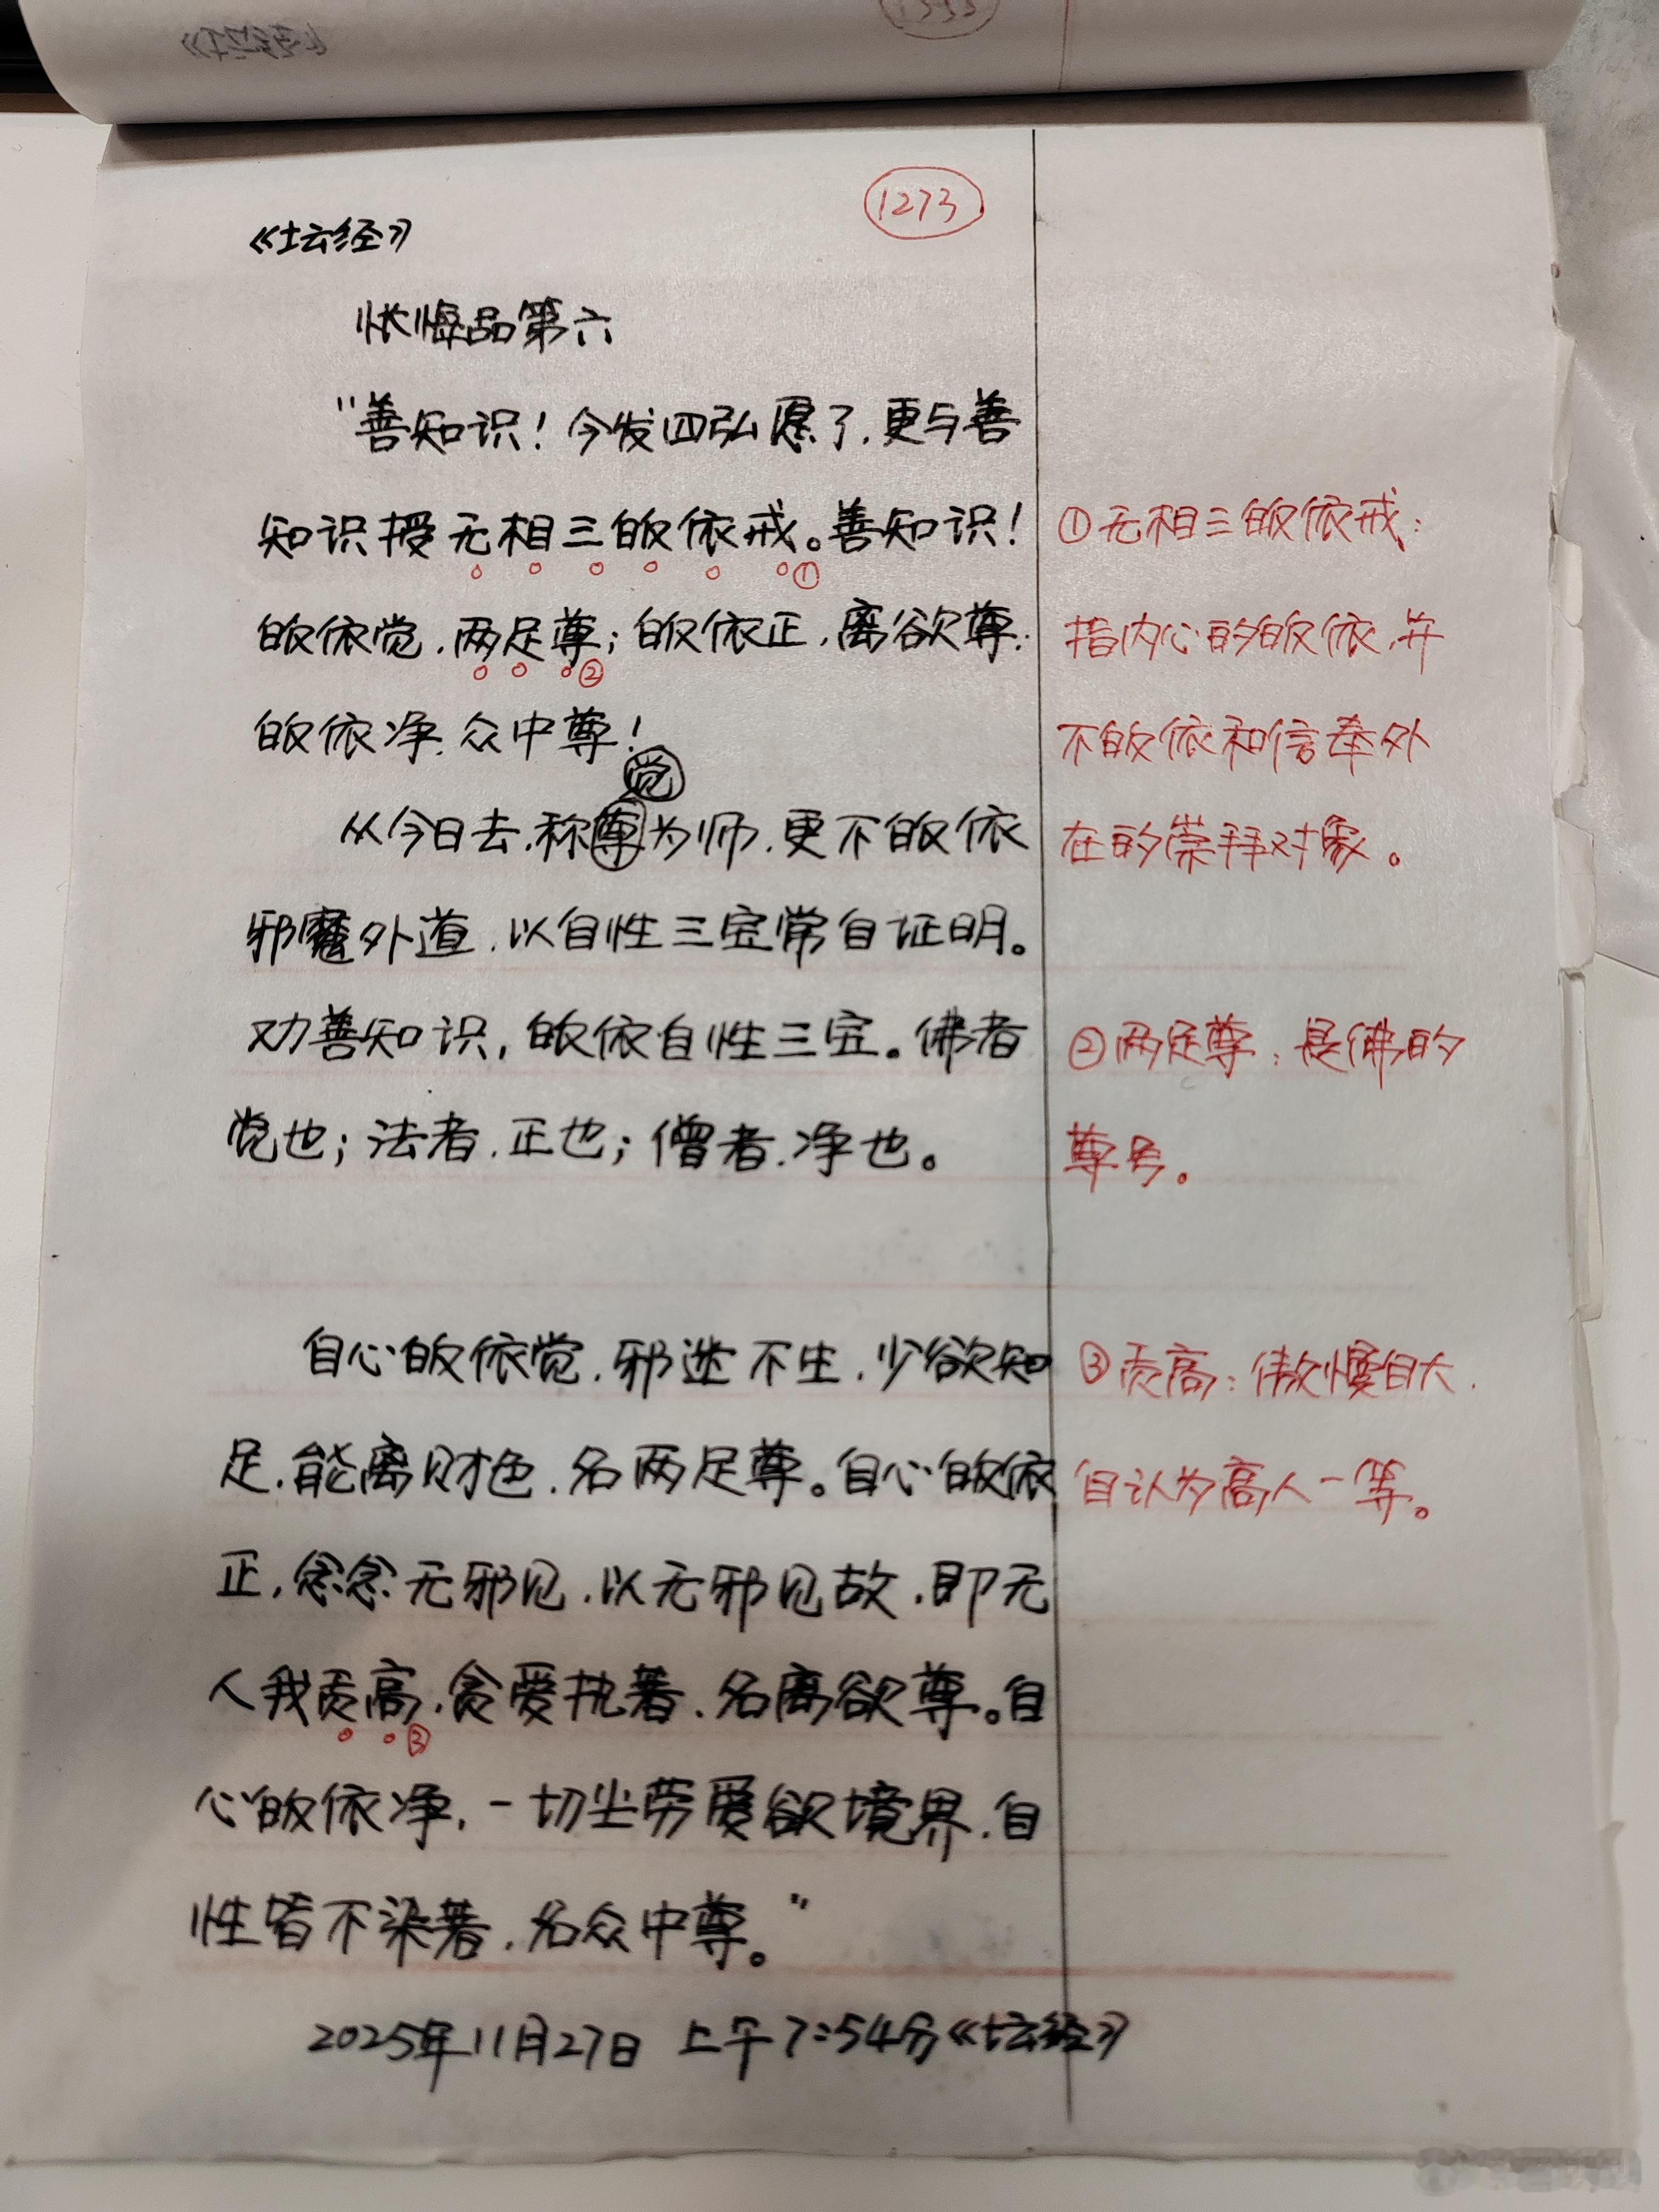 1273
《坛经》
忏悔品第六
"善知识！今发四弘愿了，更与善
知识授无相三皈依戒。善知识！
①
皈依觉，两足尊；皈依正，离欲尊；
②
皈依净，众中尊！
觉
从今日去，称尊为师，更不皈依
邪魔外道，以自性三宝常自证明。
劝善知识，皈依自性三宝。佛者
觉也；法者，正也；僧者，净也。
自心皈依觉，邪迷不生，少欲知
足，能离财色，名两足尊。自心皈依
正，念念无邪见，以无邪见故，即无
人我贡高，贪爱执著，名离欲尊。自
③
心皈依净，一切尘劳爱欲境界，自
性皆不染著，名众中尊。"
2025年11月27日 上午7:54分《坛经》
①无相三皈依戒：
指内心的皈依，并
不皈依和信奉外
在的崇拜对象。
②两足尊：是佛的
尊号。
③贡高：傲慢自大，
自认为高人一等。